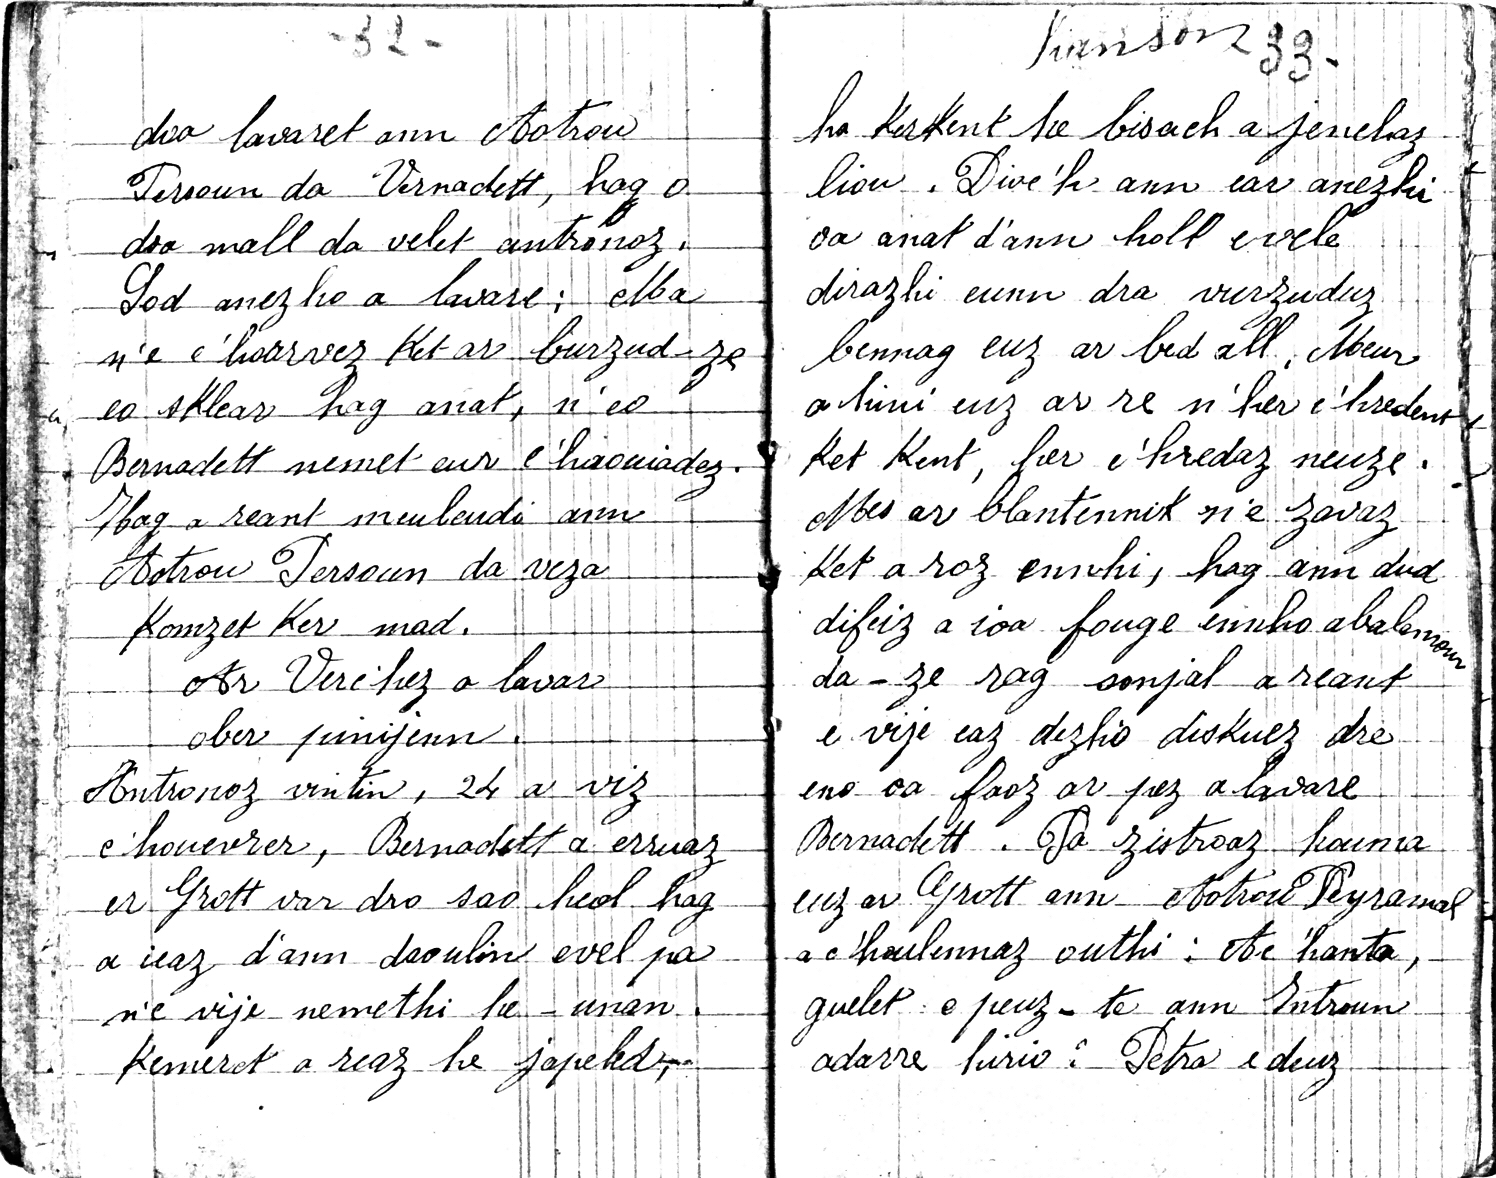 - 32 -
doa lavaret ann Aotrou
Persoun da Vernadett, hag o
doa mall da velet antronoz.
Lod anezho a lavare ; Ma
n'e c'hoarvez Ket ar burzud-ze
eo sklear hag anat, n'eo
Bernadett nemet eur c'haouiadez.
Hag a reant meuleudi ann
Aotrou Persoun da veza
Komzet Ker mad.
Ar Verc'hez a lavar
ober pinijenn.
Antronoz vintin, 24 a viz
c'houevrer, Bernadett a erruaz
er Grott var dro sao heol hag
a ieaz d'ann daoulin evel pa
n'e vije nemethi he-unan.
Kemeret a reaz he japeled,
33 -
ha KerKent he bisach a jenchaz
liou. Dioc'h ann ear anezhi
oa anat d'ann holl e vele
dirazhi eunn dra vurzuduz
bennag euz ar bed all. Meur
a hini euz ar re n'her c'hredent
Ket Kent, her c'hredaz neuze.
Mes ar blantennik n'e zavaz
Ket a roz ennhi, hag ann dud
difeiz a ioa fouge ennho abalamour
da-ze rag sonjal a reant
e vije eaz dezho diskuez dre
eno oa faoz ar pez a lavare
Bernadett. Pa zistroaz houma
euz ar Grott ann Aotrou Peyramal
a c'houlennaz outhi : Ac'hanta,
guelet e peuz-te ann Introun
adarre hirio ? Petra e deuz